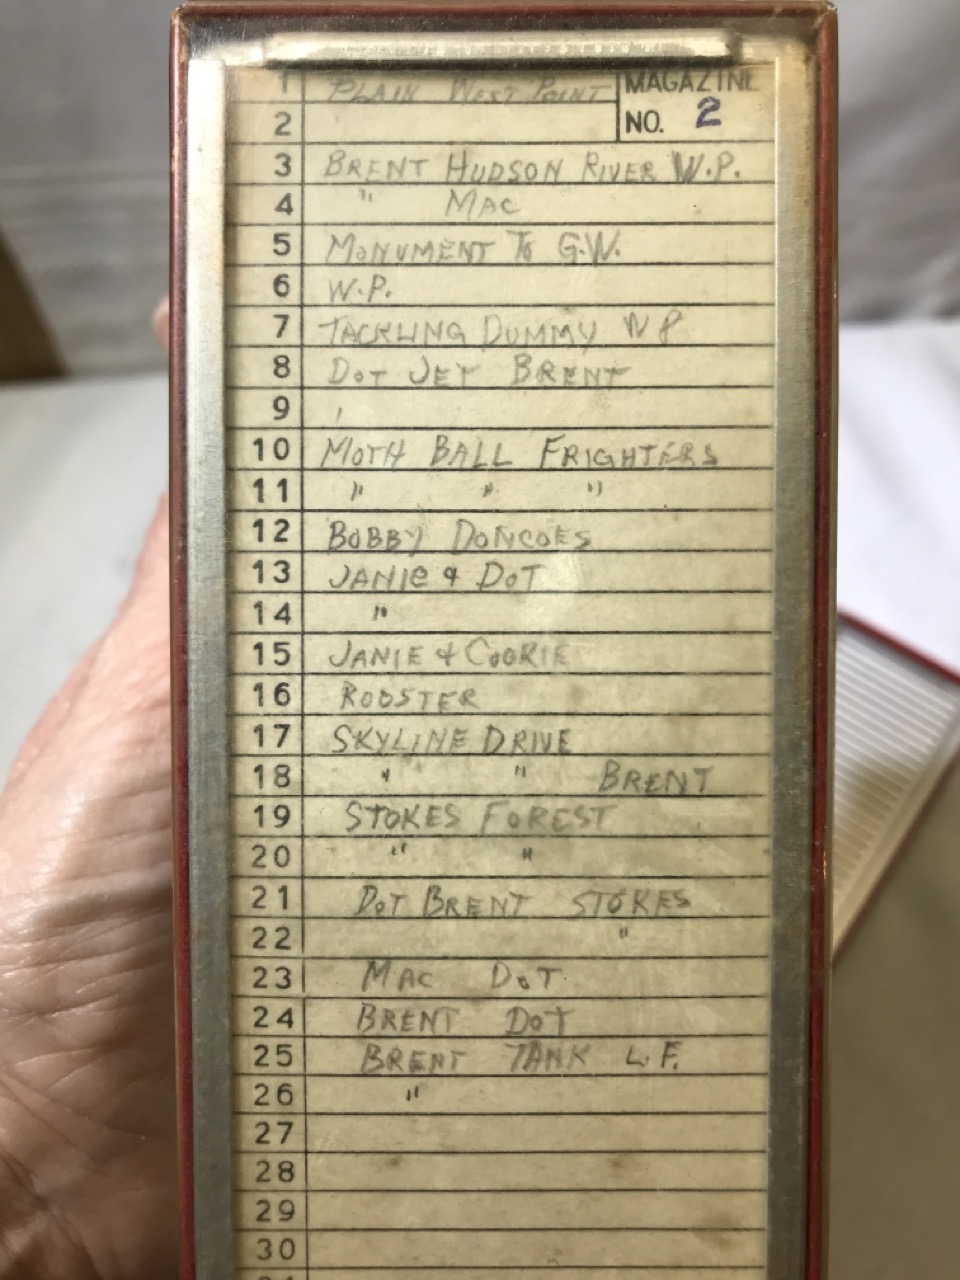 1 PLAIN WEST POINT
MAGAZINE
2
NO. 2
3 BRENT HUDSON RIVER W.P.
4 " MAC
5 MONUMENT TO G.W.
6 W.P.
7 TACKLING DUMMY WP
8 DOT JET BRENT
9
10 MOTH BALL FRIGHTERS
11 " " "
12 BOBBY DONCOES
13 JANIE & DOT
14 "
15 JANIE & COOKIE
16 ROOSTER
17 SKYLINE DRIVE
18 " " BRENT
19 STOKES FOREST
20 " "
21 DOT BRENT STOKES
22 "
23 MAC DOT
24 BRENT DOT
25 BRENT TANK L.F.
26 "
27
28
29
30